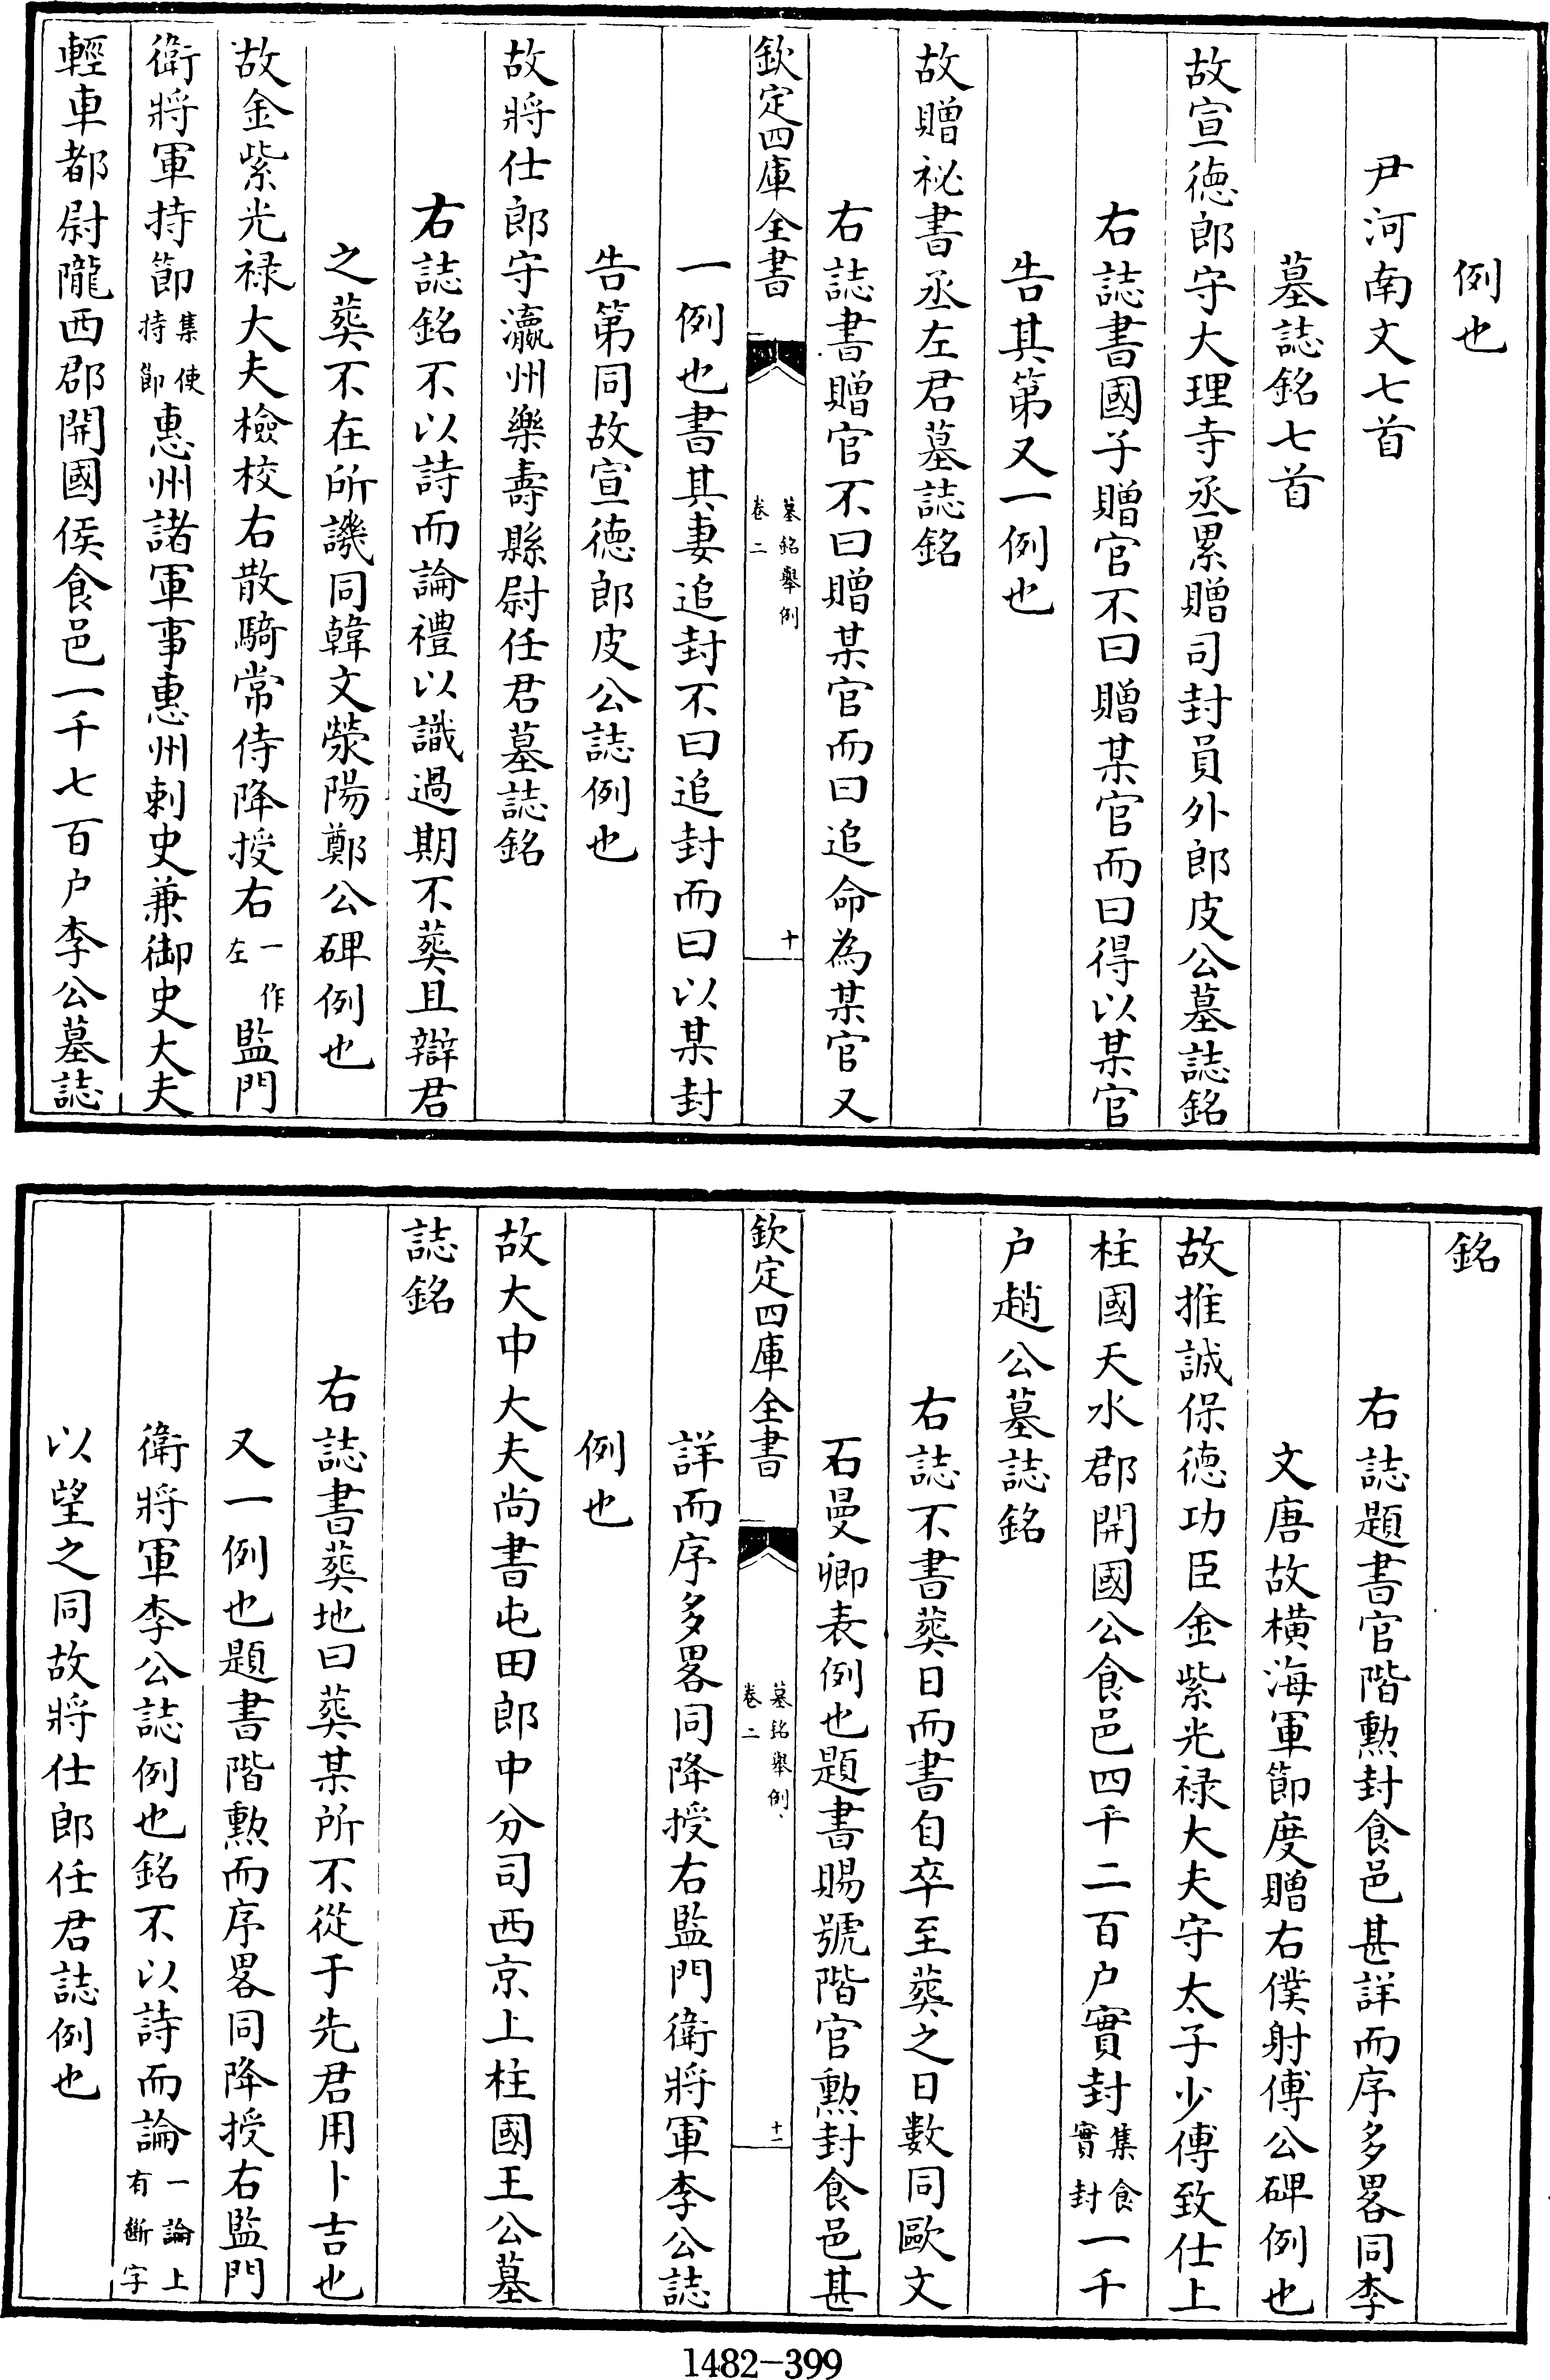 例也
尹河南文七首
墓誌銘七首
故宣徳郎守大理寺丞累贈司封員外郎皮公墓誌銘
右誌書國子贈官不曰贈某官而曰得以某官
告其第又一例也
故贈祕書丞左君墓誌銘
右誌書贈官不曰贈某官而曰追命為某官又
欽定四庫全書
墓銘舉例
卷二
十
一例也書其妻追封不曰追封而曰以某封
告第同故宣徳郎皮公誌例也
故將仕郎守瀛州樂壽縣尉任君墓誌銘
右誌銘不以詩而論禮以識過期不葬且辯君
之葬不在所譏同韓文滎陽鄭公碑例也
故金紫光禄大夫檢校右散騎常侍降授右一作左監門
衛將軍持節集使持節惠州諸軍事惠州刺史兼御史大夫
輕車都尉隴西郡開國侯食邑一千七百户李公墓誌
銘
右誌題書官階勲封食邑甚詳而序多畧同李
文唐故橫海軍節度贈右僕射傅公碑例也
故推誠保徳功臣金紫光禄大夫守太子少傅致仕上
柱國天水郡開國公食邑四千二百户實封集食實封一千
户趙公墓誌銘
右誌不書葬日而書自卒至葬之日數同歐文
石曼卿表例也題書賜號階官勲封食邑甚
欽定四庫全書
墓銘舉例
卷二
十一
詳而序多畧同降授右監門衛將軍李公誌
例也
故大中大夫尚書屯田郎中分司西京上柱國王公墓
誌銘
右誌書葬地曰葬某所不從于先君用卜吉也
又一例也題書階勲而序畧同降授右監門
衛將軍李公誌例也銘不以詩而論一論上有斷字
以望之同故將仕郎任君誌例也
1482-399